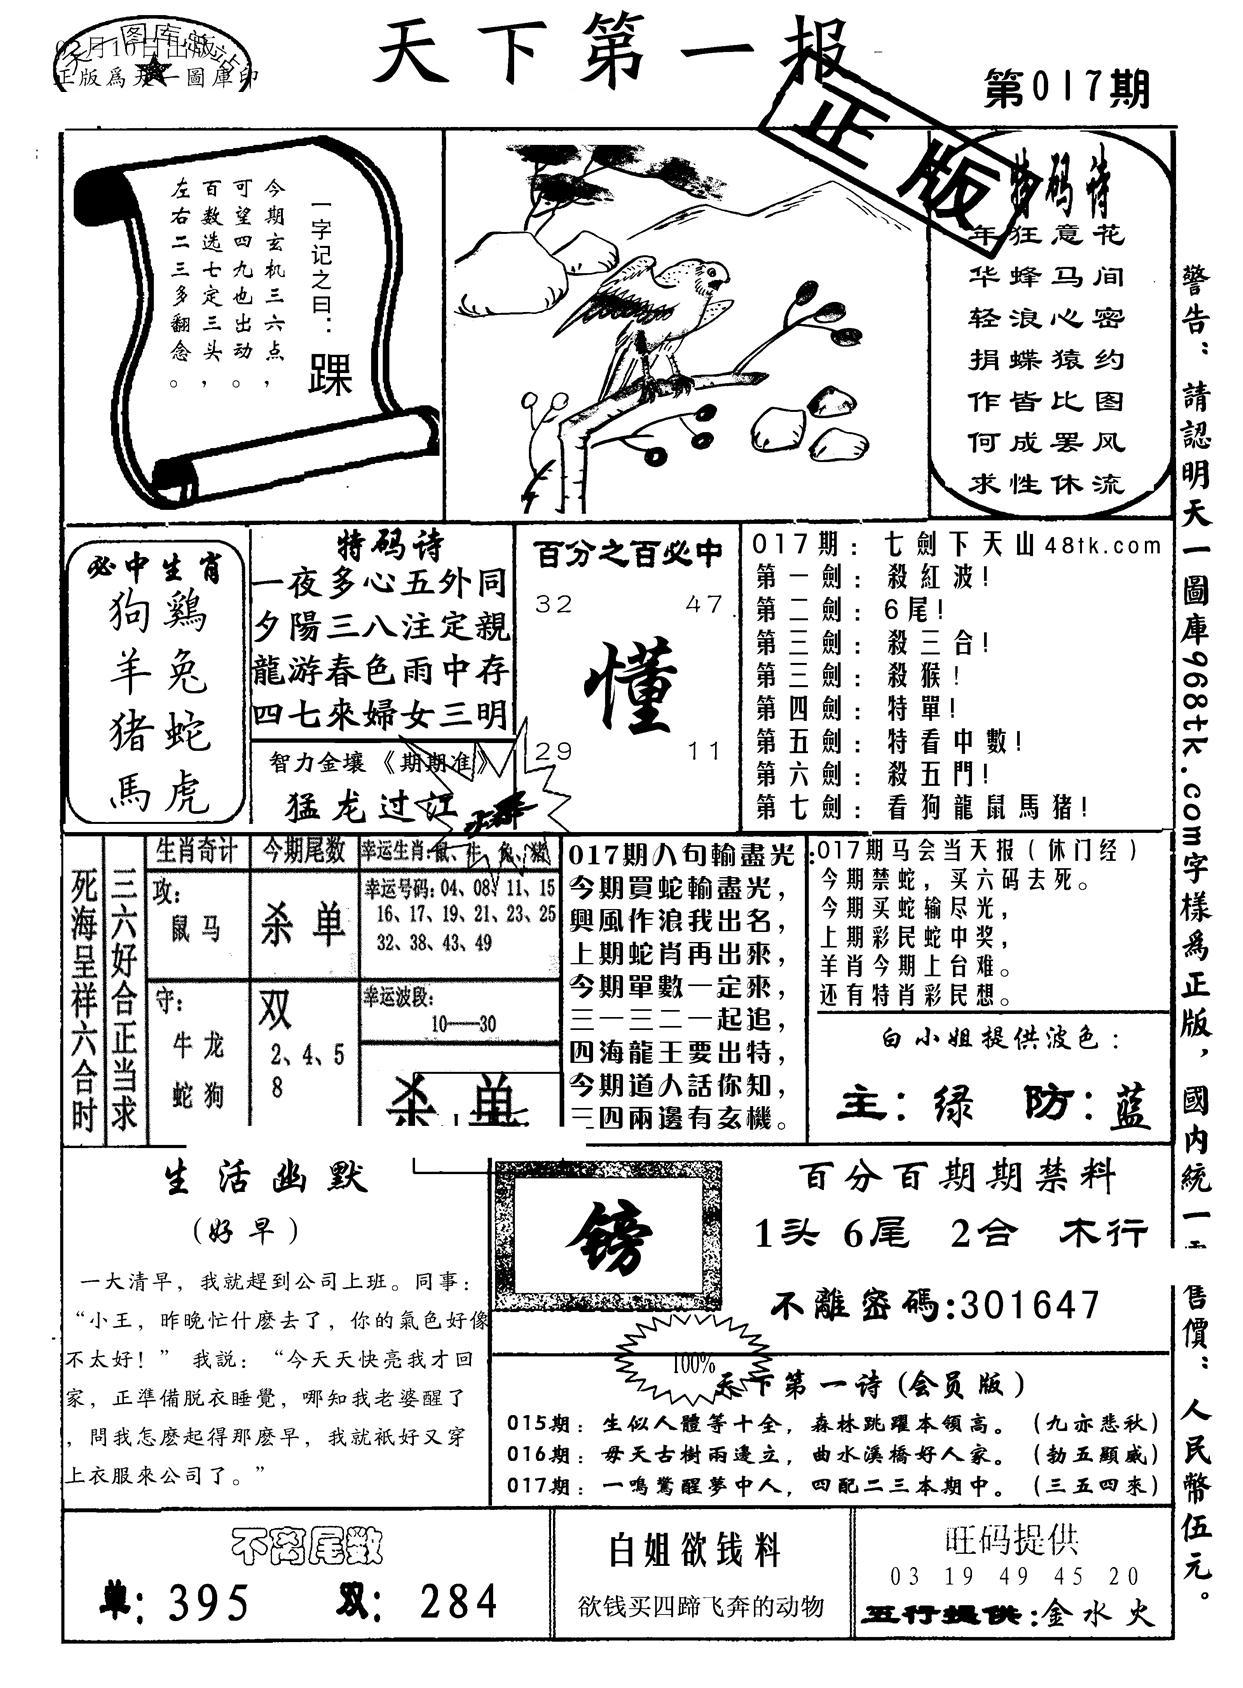 天下第一报
02月16日出版
正版爲天一圖庫印
第017期
正版
一字记之曰：踝
今期玄机三六点，
可望四九也出动。
百数选七定三头，
左右二三多翻念。
特码诗
花间密约图风流
意马心猿比罢休
狂蜂浪蝶皆成性
年华轻捐作何求
警告：請認明天一圖庫968tk.com字樣為正版，國内統一
售價：人民幣伍元。
必中生肖
狗鷄
羊兔
猪蛇
馬虎
特码诗
一夜多心五外同
夕陽三八注定親
龍游春色雨中存
四七來婦女三明
智力金壤《期期准》
猛龙过江
百分之百必中
32 47
懂
29 11
017期：七劍下天山48tk.com
第一劍：殺紅波！
第二劍：6尾！
第三劍：殺三合！
第三劍：殺猴！
第四劍：特單！
第五劍：特看中數！
第六劍：殺五門！
第七劍：看狗龍鼠馬猪！
三六好合正当求
死海呈祥六合时
生肖奇计
攻：
鼠马
守：
牛龙
蛇狗
今期尾数
杀单
双
2、4、5
8
幸运生肖：鼠、牛、兔、猪
幸运号码：04、08、11、15
16、17、19、21、23、25
32、38、43、49
幸运波段：
10——30
杀单
017期八句輸盡光：
今期買蛇輸盡光，
興風作浪我出名，
上期蛇肖再出來，
今期單數一定來，
三一三二一起追，
四海龍王要出特，
今期道人話你知，
三四兩邊有玄機。
017期马会当天报（休门经）
今期禁蛇，买六码去死。
今期买蛇输尽光，
上期彩民蛇中奖，
羊肖今期上台难。
还有特肖彩民想。
白小姐提供波色：
主：绿 防：蓝
生活幽默
（好早）
一大清早，我就趕到公司上班。同事：
“小王，昨晚忙什麽去了，你的氣色好像
不太好！” 我説：“今天天快亮我才回
家，正準備脱衣睡覺，哪知我老婆醒了
，問我怎麽起得那麽早，我就衹好又穿
上衣服來公司了。”
镑
百分百期期禁料
1头 6尾 2合 木行
不離密碼:301647
100%
天下第一诗(会员版)
015期：生似人體等十全，森林跳躍本領高。（九亦悲秋）
016期：毋天古樹兩邊立，曲水溪橋好人家。（勃五顯威）
017期：一鳴驚醒夢中人，四配二三本期中。（三五四來）
不离尾数
单：395 双：284
白姐欲钱料
欲钱买四蹄飞奔的动物
旺码提供
03 19 49 45 20
五行提供：金水火